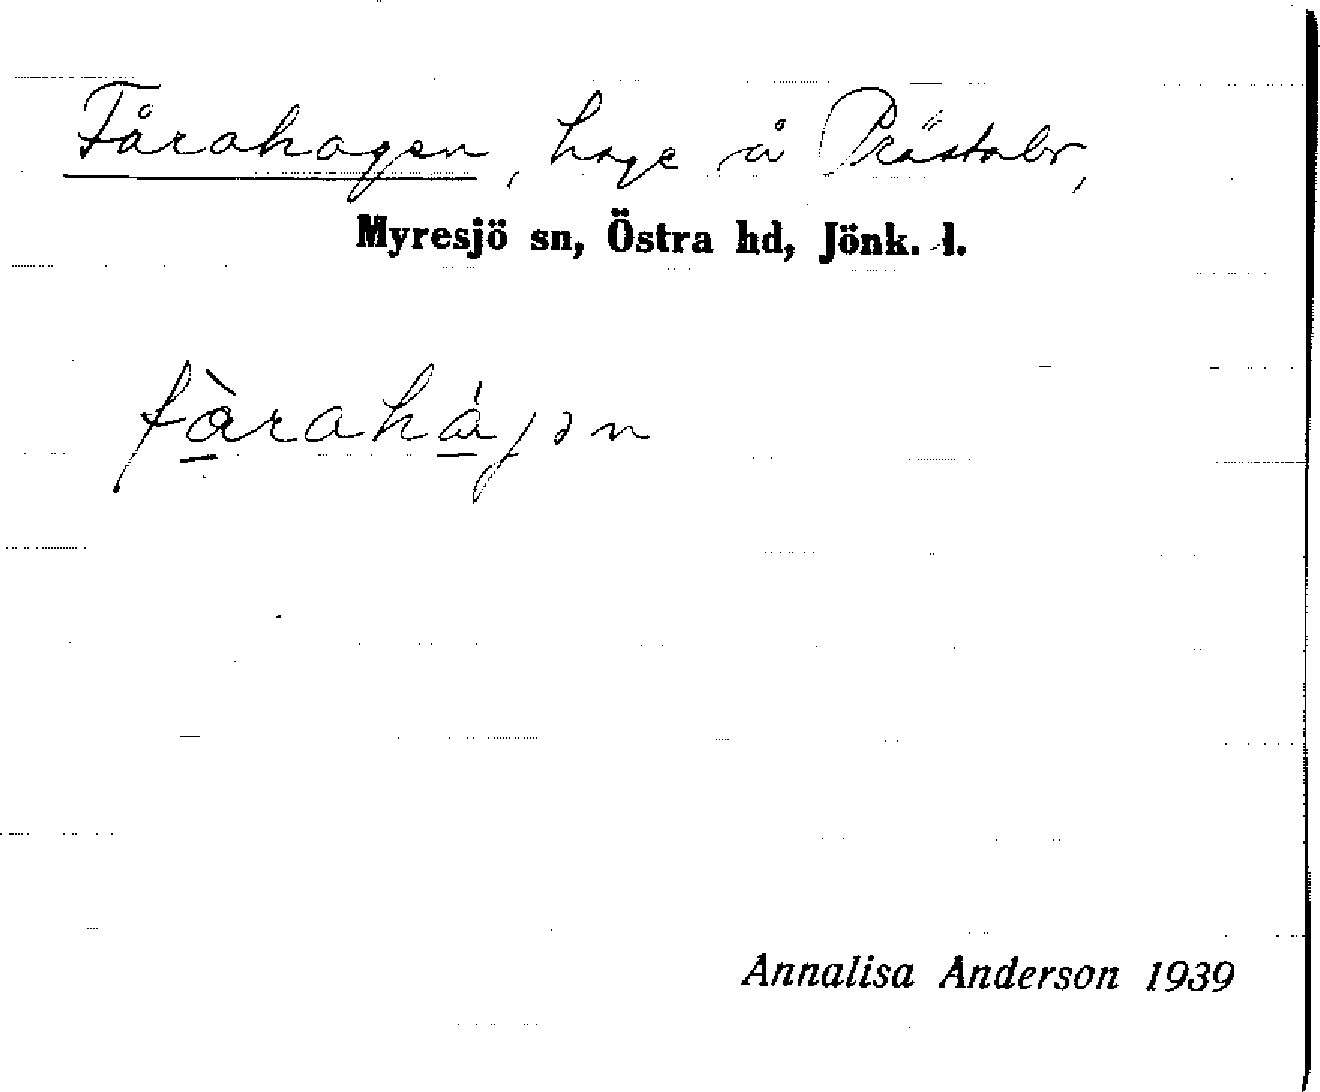 Fårahagen, hage å Prästabr,
Myresjö sn, Östra hd, Jönk. l.
fàrahágən
Annalisa Anderson 1939